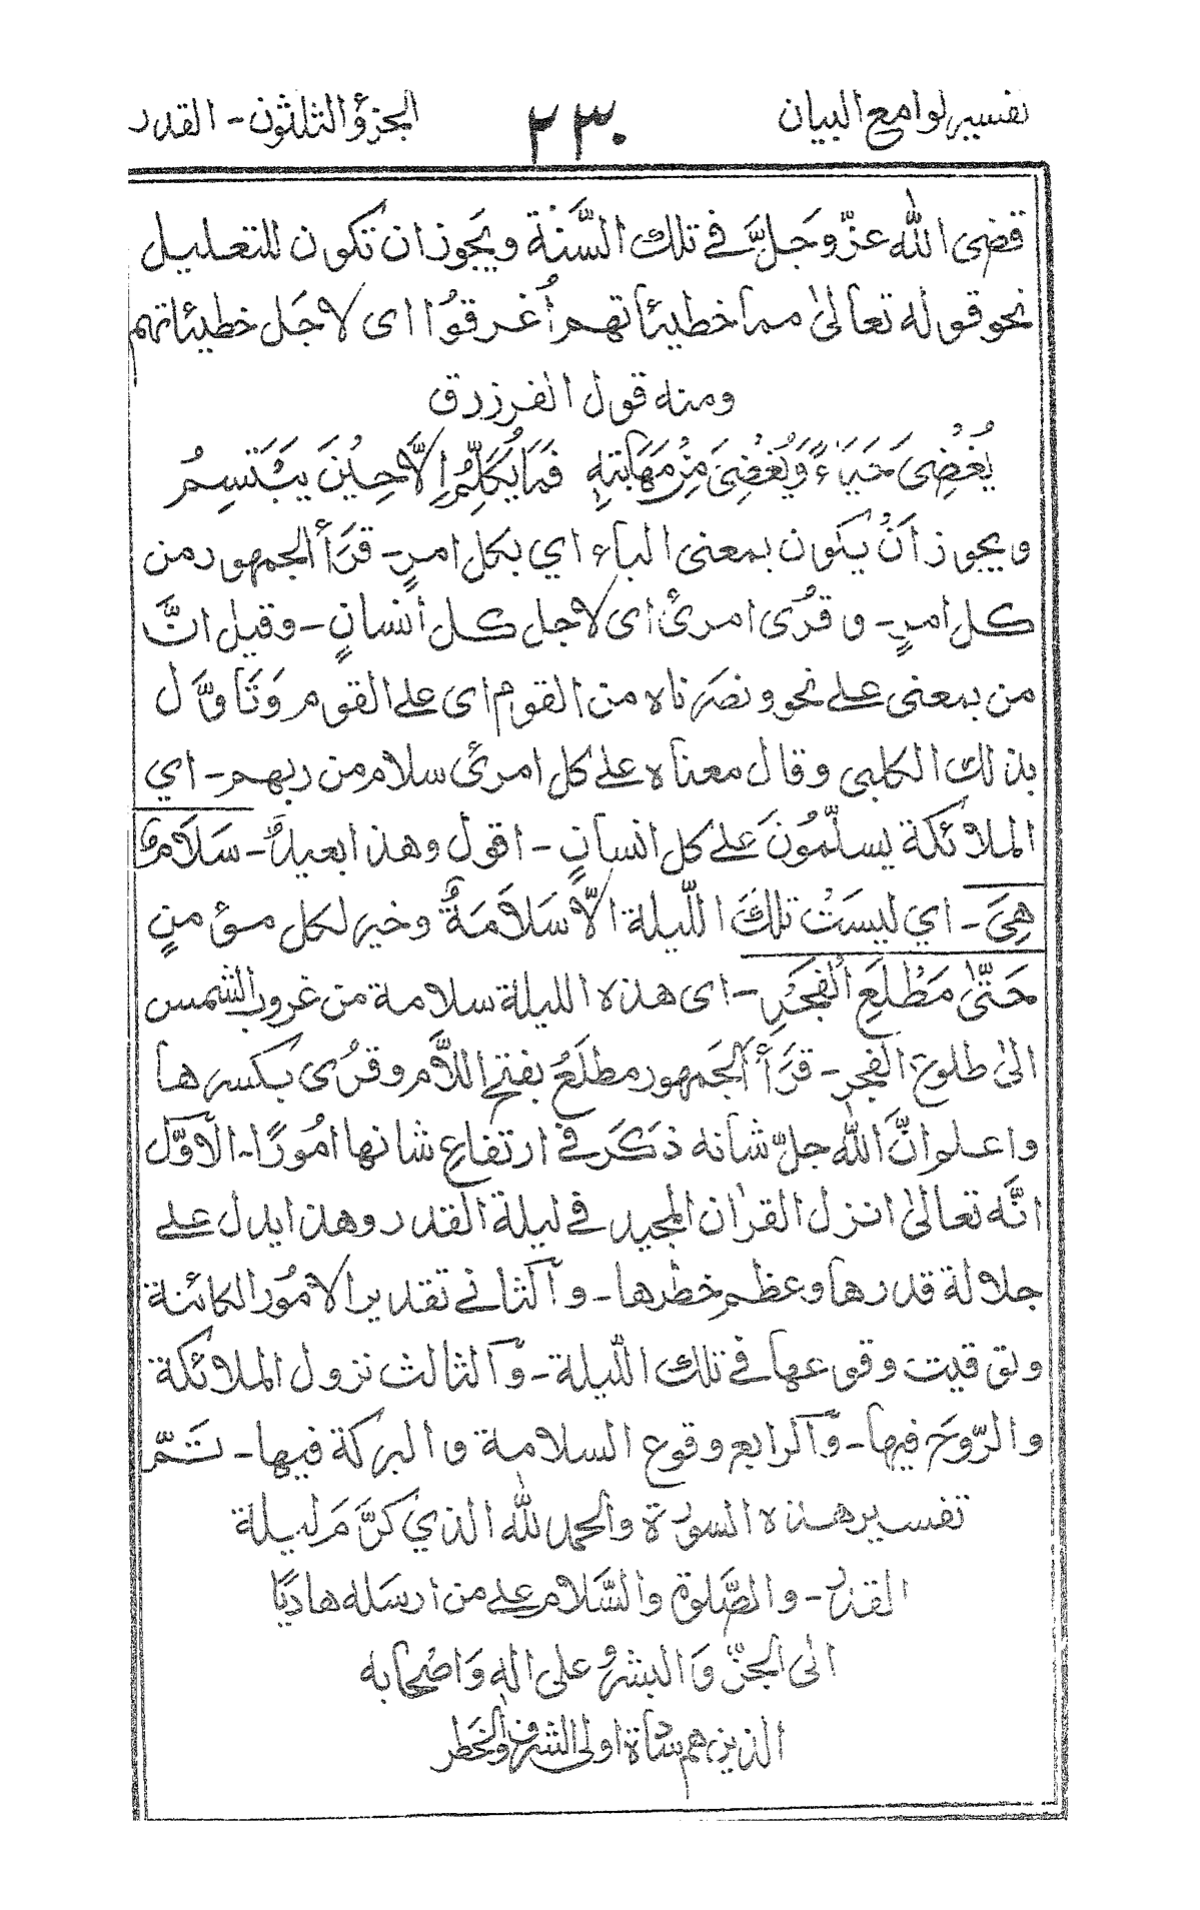 تفسير لوامع البيان ٢٣٠ الجزؤ الثلثون - القدر
قضى الله عزّ وجَلَّ في تلك السَّنة ويجوز ان تكون للتعليل
نحو قوله تعالىٰ مما خطيئاتهم أُغرقوُا اى لاجَل خطيئاتهم
ومنه قول الفرزدق
يُغْضِىَ حَيَاءً وَيُغْضىَ مِنْ مَهَابَتهِ فَمَا يُكَلَّمُ اِلَّا حِيْنَ يَبْتَسِمُ
ويجوز اَنْ يكون بمعنى الباء اي بكل امرٍ - قَرَأ الجمهور من
كل امرٍ - وقرُى امرئ اى لاجل كل انسانٍ - وقيل انَّ
من بمعنى على نحو ونصَرناه من القوم اى على القوم وَتَاوَّل
بذلك الكلبى وقال معناه على كل امرئ سلام من ربهم - اي
الملائكة يسلّمُونَ على كل انسانٍ - اقول وهذا بعيدٌ - سَلَامٌ
هِىَ - اي ليسَتْ تلكَ اللّيلة الّا سَلاَمَةٌ وخير لكل مؤمنٍ
حَتّىٰ مَطْلَعِ الْفَجْرِ - اى هذه الليلة سلامة من غروب الشمس
الىٰ طلوع الفجر - قَرَأ الجَمهور مطلَعُ بفتح اللاَّم وقرُى بكسرها
واعلم انَّ الله جلّ شانه ذكَرَ فى ارتفاعِ شانها امُورًا - الاَوّل
انَّه تعالىٰ انزل القراٰن المجيد فى ليلة القدر وهذا يدل على
جلالة قدرها وعظم خطرها - وَالثانى تقدير الامُور الكائنة
وتوقيت وقوعها فى تلك اللّيلة - وَالثالث نزول الملائكة
والرّوحَ فيها - وَالرابع وقوع السلامة والبركة فيها - تَمّ
تفسير هذه السورة والحمد لله الذي كرَّمَ ليلة
القدر - والصَّلوة والسَّلام على من ارسَله هاديًا
الى الجنّ وَالبشر وعلى اله وَاصْحابه
الذين هم سَادَة اولى الشرف والخَطر